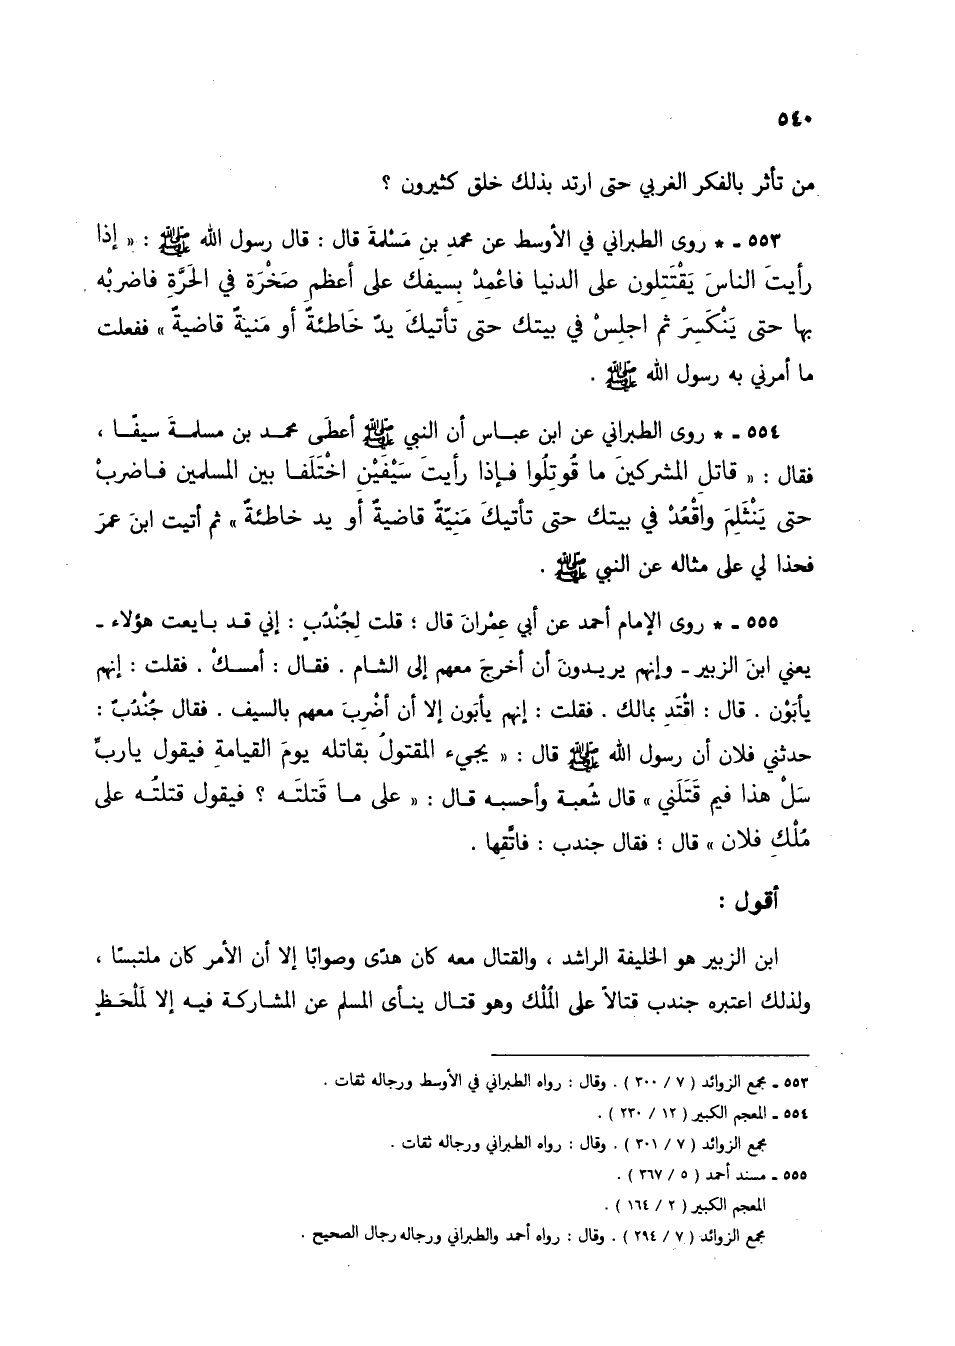 ٥٤٠
من تأثر بالفكر الغربي حتى ارتد بذلك خلق كثيرون ؟
٥٥٣ ـ * روى الطبراني في الأوسط عن محمدِ بنِ مَسْلمةَ قال : قال رسول الله ﷺ : « إذا
رأيتَ الناسَ يَقْتَتِلون على الدنيا فاعْمِدْ بِسيفك على أعظمِ صَخْرَة في الحَرَّةِ فاضربْه
بها حتى يَنْكَسِرَ ثم اجلِسْ في بيتك حتى تأتيكَ يدٌ خَاطئةٌ أو مَنيةٌ قاضيةٌ » ففعلت
ما أمرني به رسول الله ﷺ .
٥٥٤ ـ * روى الطبراني عن ابن عباس أن النبي ﷺ أعطَى محمد بن مسلمةَ سيفًا ،
فقال : « قاتلِ المشركينَ ما قُوتِلُوا فإذا رأيتَ سَيْفَيْنِ اخْتَلَفا بين المسلمين فاضربْ
حتى يَنْثَلِمَ واقْعُدْ في بيتك حتى تأتيكَ مَنِيّةٌ قاضيةٌ أو يد خاطئةٌ » ثم أتيت ابنَ عمرَ
فحذا لي على مثاله عن النبي ﷺ .
٥٥٥ ـ * روى الإمام أحمد عن أبي عِمْرانَ قال ؛ قلت لِجُنْدُبٍ : إني قد بايعت هؤلاء ـ
يعني ابنَ الزبير ـ وإنهم يريدونَ أن أخرجَ معهم إلى الشام . فقال : أمسكْ . فقلت : إنهم
يأبَوْن . قال : اقْتَدِ بمالك . فقلت : إنهم يأبَون إلا أن أضْرِبَ معهم بالسيف . فقال جُنْدُبٌ :
حدثني فلان أن رسول الله ﷺ قال : « يجيء المقتولُ بقاتله يومَ القيامةِ فيقول ياربِّ
سَلْ هذا فيم قَتَلَني » قال شُعبة وأحسبه قال : « على ما قَتلتَه ؟ فيقول قتلتُه على
مُلْكِ فلان » قال ؛ فقال جندب : فاتَّقِها .
أقول :
ابن الزبير هو الخليفة الراشد ، والقتال معه كان هدًى وصوابًا إلا أن الأمر كان ملتبسًا ،
ولذلك اعتبره جندب قتالاً على المُلْك وهو قتال ينأى المسلم عن المشاركة فيه إلا لَمَلْحَظٍ
٥٥٣ ـ مجمع الزوائد ( ٧ / ٣٠٠ ) . وقال : رواه الطبراني في الأوسط ورجاله ثقات .
٥٥٤ ـ المعجم الكبير ( ١٢ / ٢٣٠ ) .
مجمع الزوائد ( ٧ / ٣٠١ ) . وقال : رواه الطبراني ورجاله ثقات .
٥٥٥ ـ مسند أحمد ( ٥ / ٣٦٧ ) .
المعجم الكبير ( ٢ / ١٦٤ ) .
مجمع الزوائد ( ٧ / ٢٩٤ ) . وقال : رواه أحمد والطبراني ورجاله رجال الصحيح .